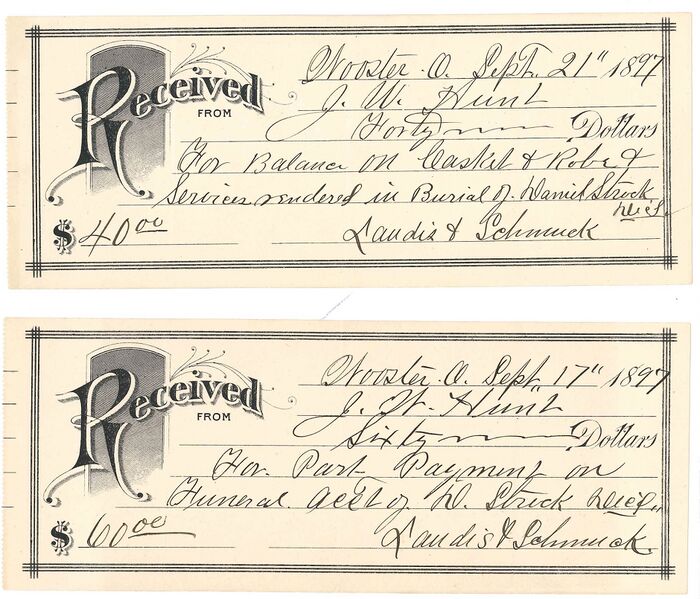 Wooster. O. Sept. 21" 1897
Received
FROM
J. W. Hunt
Forty Dollars
For Balance on Casket & Robe &
Services rendered in Burial of Daniel Struck
Dec'd.
$ 40 00
Landis & Schmuck
Wooster. O. Sept. 17" 1897
Received
FROM
J. W. Hunt
Sixty Dollars
For. Part Payment on
Funeral acct of D. Struck Dec'd.
$ 60 00
Landis & Schmuck.